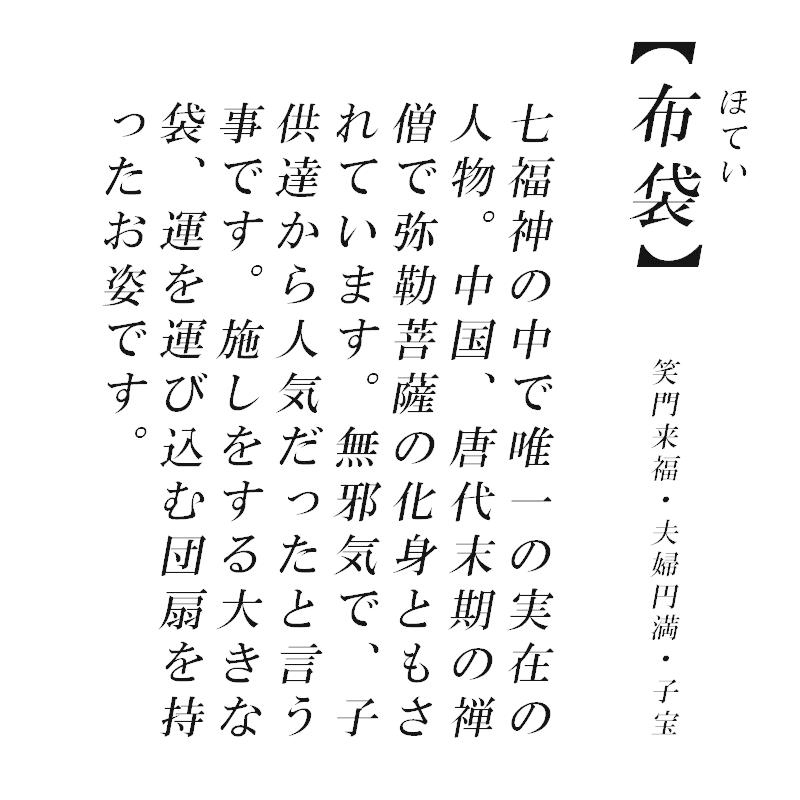 ほてい
【布袋】
笑門来福・夫婦円満・子宝
七福神の中で唯一の実在の
人物。中国、唐代末期の禅
僧で弥勒菩薩の化身ともさ
れています。無邪気で、子
供達から人気だったと言う
事です。施しをする大きな
袋、運を運び込む団扇を持
ったお姿です。